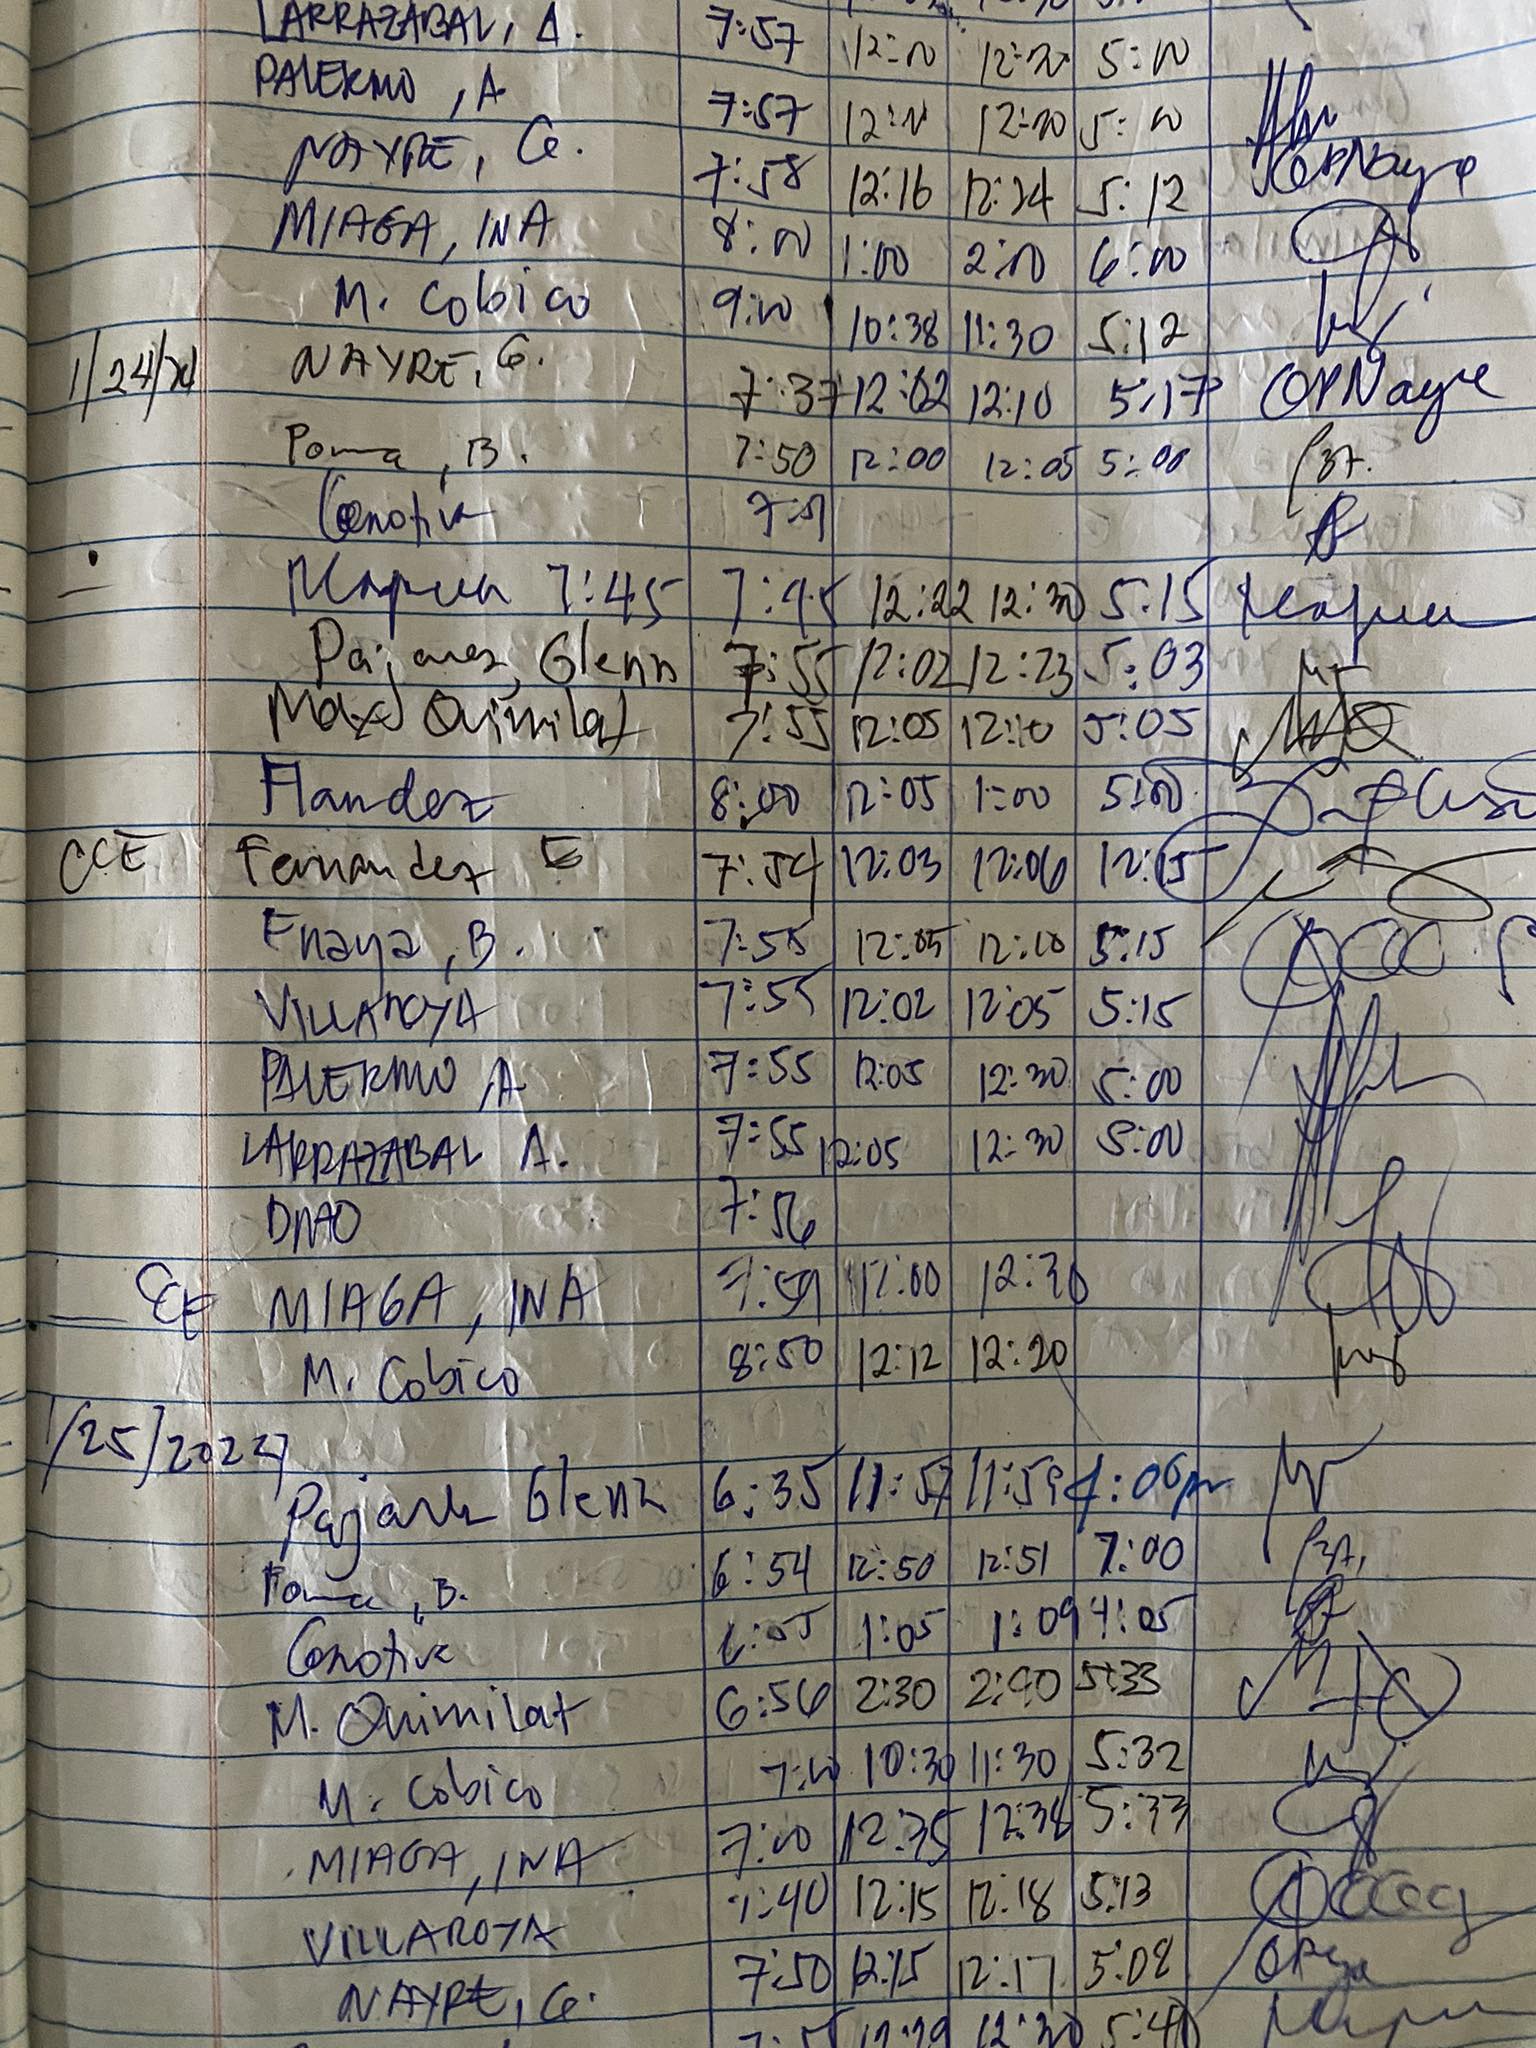 LARRAZABAL, A. 7:57 12:00 12:30 5:00
PALERMO, A 7:57 12:00 12:30 5:00
NAYRE, G. 7:58 12:16 12:24 5:12
MIAGA, INA 8:00 1:00 2:00 6:00
M. Cobico 9:00 10:38 11:30 5:12
1/24/ NAYRE, G. 7:37 12:02 12:10 5:17 GPNayre
Poma, B. 7:50 12:00 12:05 5:00
Genotiva
7:45 7:45 12:22 12:30 5:15
Pajares, Glenn 7:55 12:02 12:23 5:03
Max Quimilat 7:55 12:05 12:10 5:05
Flandez 8:00 12:05 1:00 5:00
CCE Fernandez E 7:54 12:03 12:06 12:15
Enaya, B. 7:55 12:05 12:10 5:15
VILLAROYA 7:55 12:02 12:05 5:15
PALERMO, A 7:55 12:05 12:30 5:00
LARRAZABAL A. 7:55 12:05 12:30 5:00
7:56
MIAGA, INA 7:59 12:00 12:30
M. Cobico 8:50 12:12 12:20
1/25/2022
Pajares Glenn 6:35 11:57 11:59 4:06pm
Poma, B. 6:54 12:50 12:51 7:00
Genotiva 6:55 1:05 1:09 4:05
M. Quimilat 6:56 2:30 2:40 5:33
M. Cobico 7:00 10:30 11:30 5:32
MIAGA, INA 7:00 12:35 12:38 5:33
VILLAROYA 7:40 12:15 12:18 5:13
NAYRE, G. 7:50 12:15 12:17 5:08
12:29 12:30